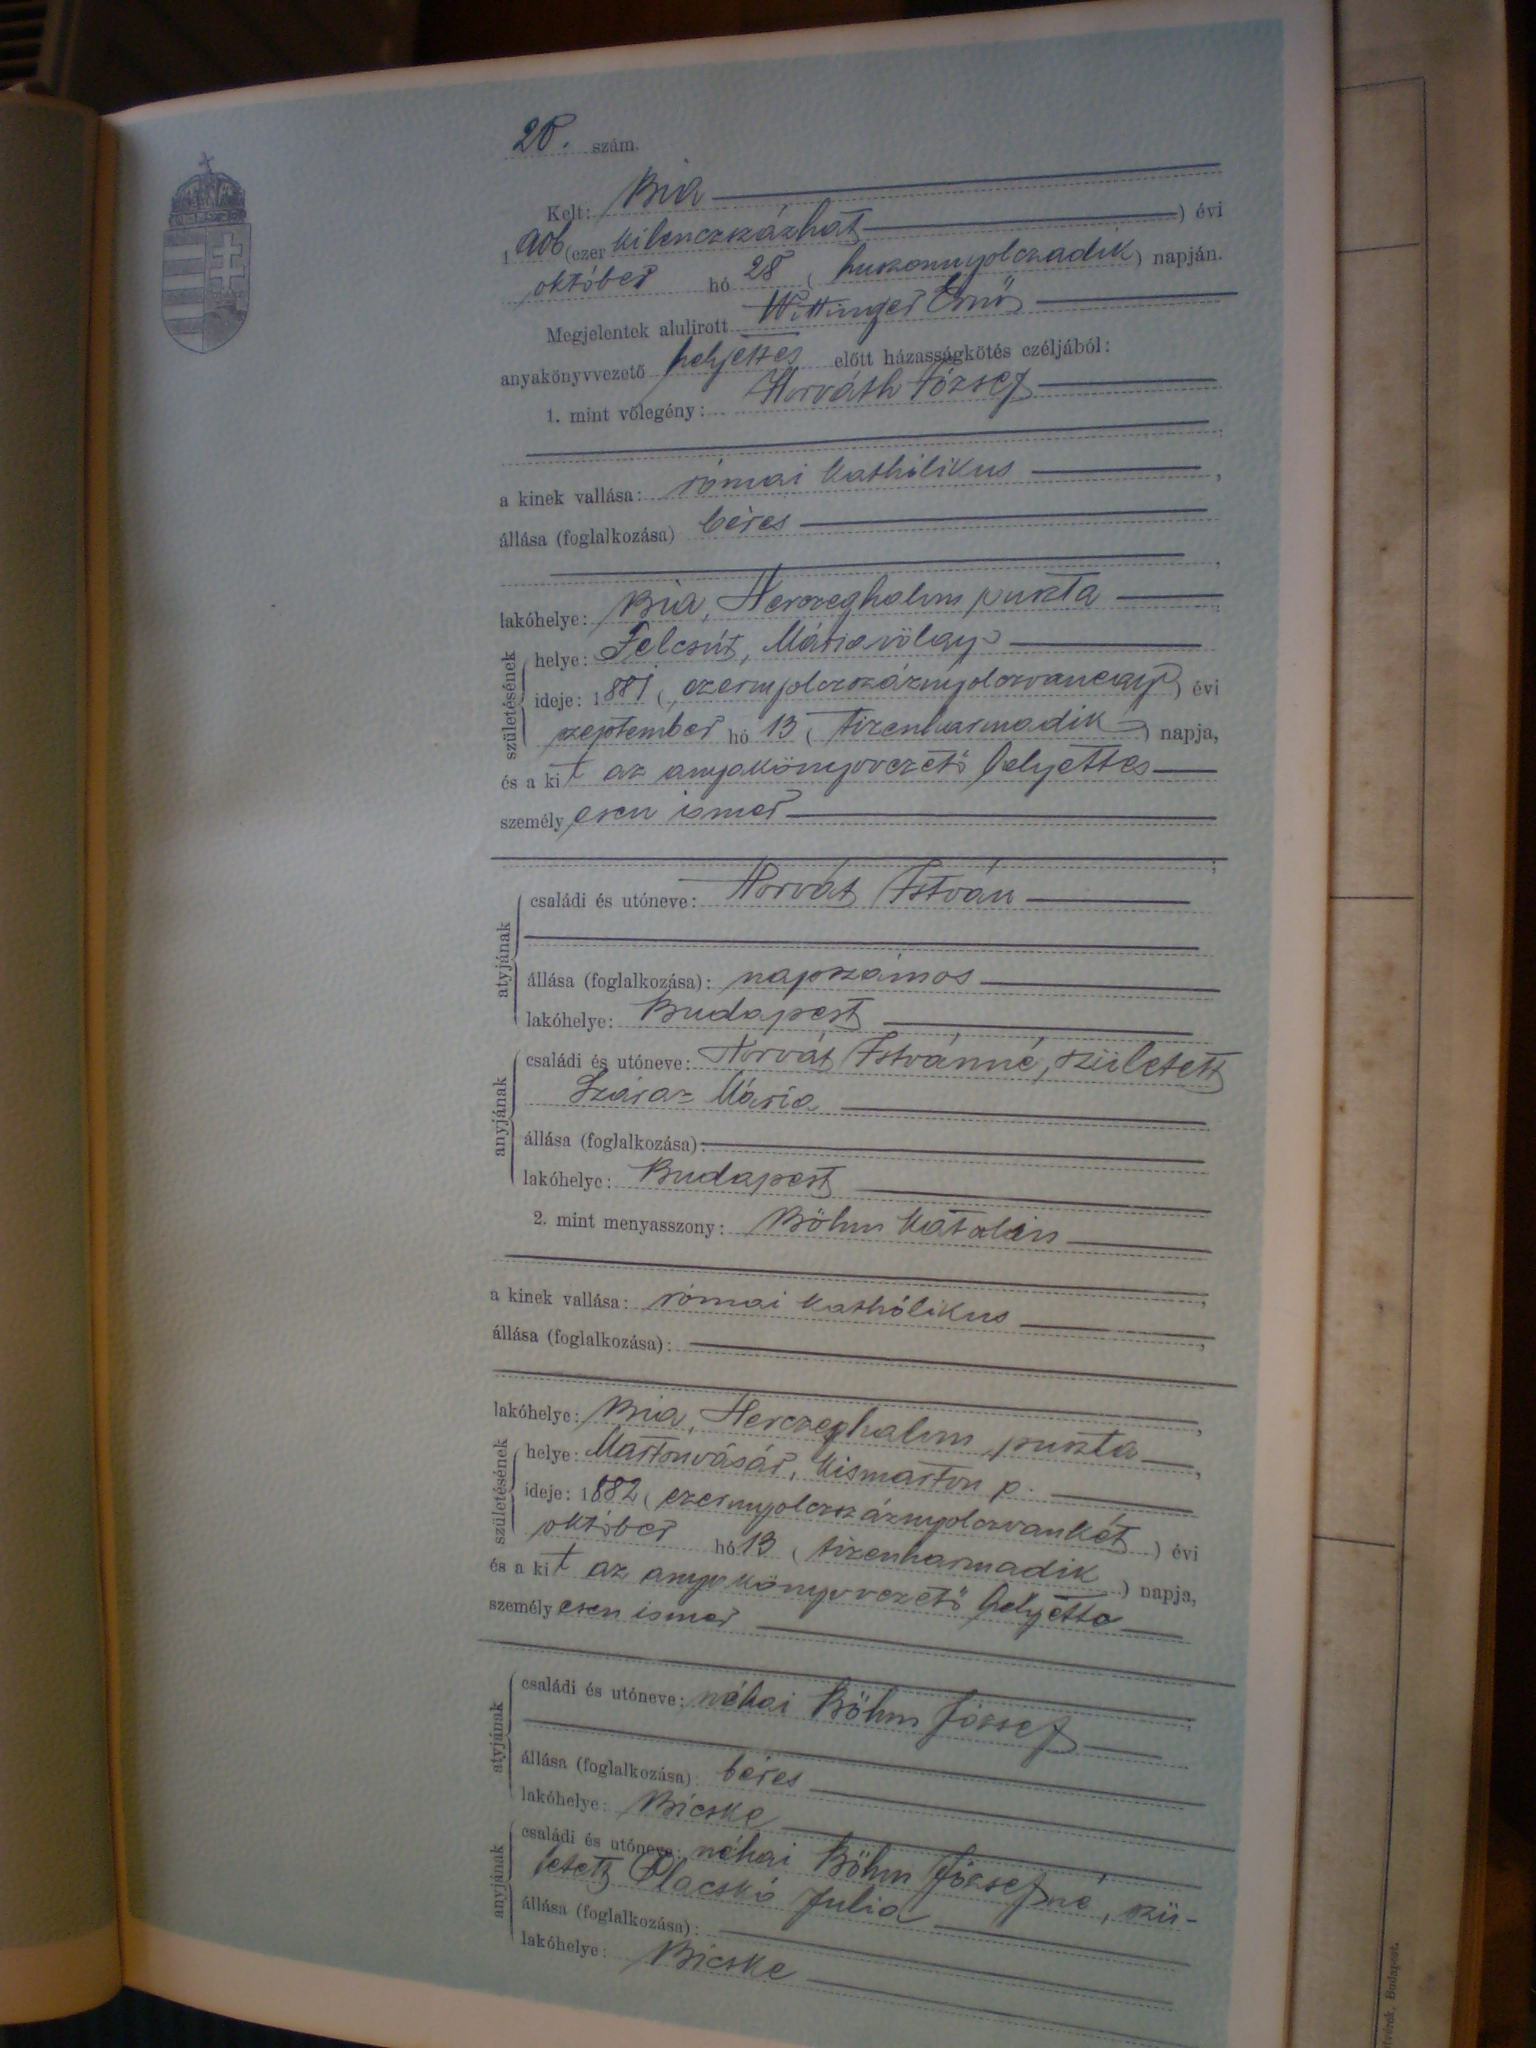 28. szám.
Kelt: Bia
1906 (ezer kilenczszázhat ) évi
október hó 28 ( huszonnyolczadik ) napján.
Megjelentek alulirott Wittinger Ernő
anyakönyvvezető helyettes előtt házasságkötés czéljából:
1. mint vőlegény: Horváth József
a kinek vallása: római katholikus ,
állása (foglalkozása) béres
,
lakóhelye: Bia, Herczeghalom puszta ;
születésének
helye: Felcsút, Máriavölgy
ideje: 1881 ( ezernyolczszáznyolczvanegy ) évi
szeptember hó 13 ( tizenharmadik ) napja,
és a kit az anyakönyvvezető helyettes
személyesen ismer
;
atyjának
családi és utóneve: Horvát István
állása (foglalkozása): napszámos
lakóhelye: Budapest
anyjának
családi és utóneve: Horvát Istvánné, született
Száraz Mária
állása (foglalkozása):
lakóhelye: Budapest
2. mint menyasszony: Böhm Katalin
;
a kinek vallása: római kathólikus ,
állása (foglalkozása):
,
lakóhelye: Bia, Herczeghalom puszta ,
születésének
helye: Martonvásár, Kismarton p.
ideje: 1882 ( ezernyolczszáznyolczvankét ) évi
október hó 13 ( tizenharmadik ) napja,
és a kit az anyakönyvvezető helyette
személyesen ismer
;
atyjának
családi és utóneve: néhai Böhm József
állása (foglalkozása): béres
lakóhelye: Bicske
anyjának
családi és utóneve: néhai Böhm Józsefné, szü-
letett Placskó Julia
állása (foglalkozása):
lakóhelye: Bicske
Budapest.